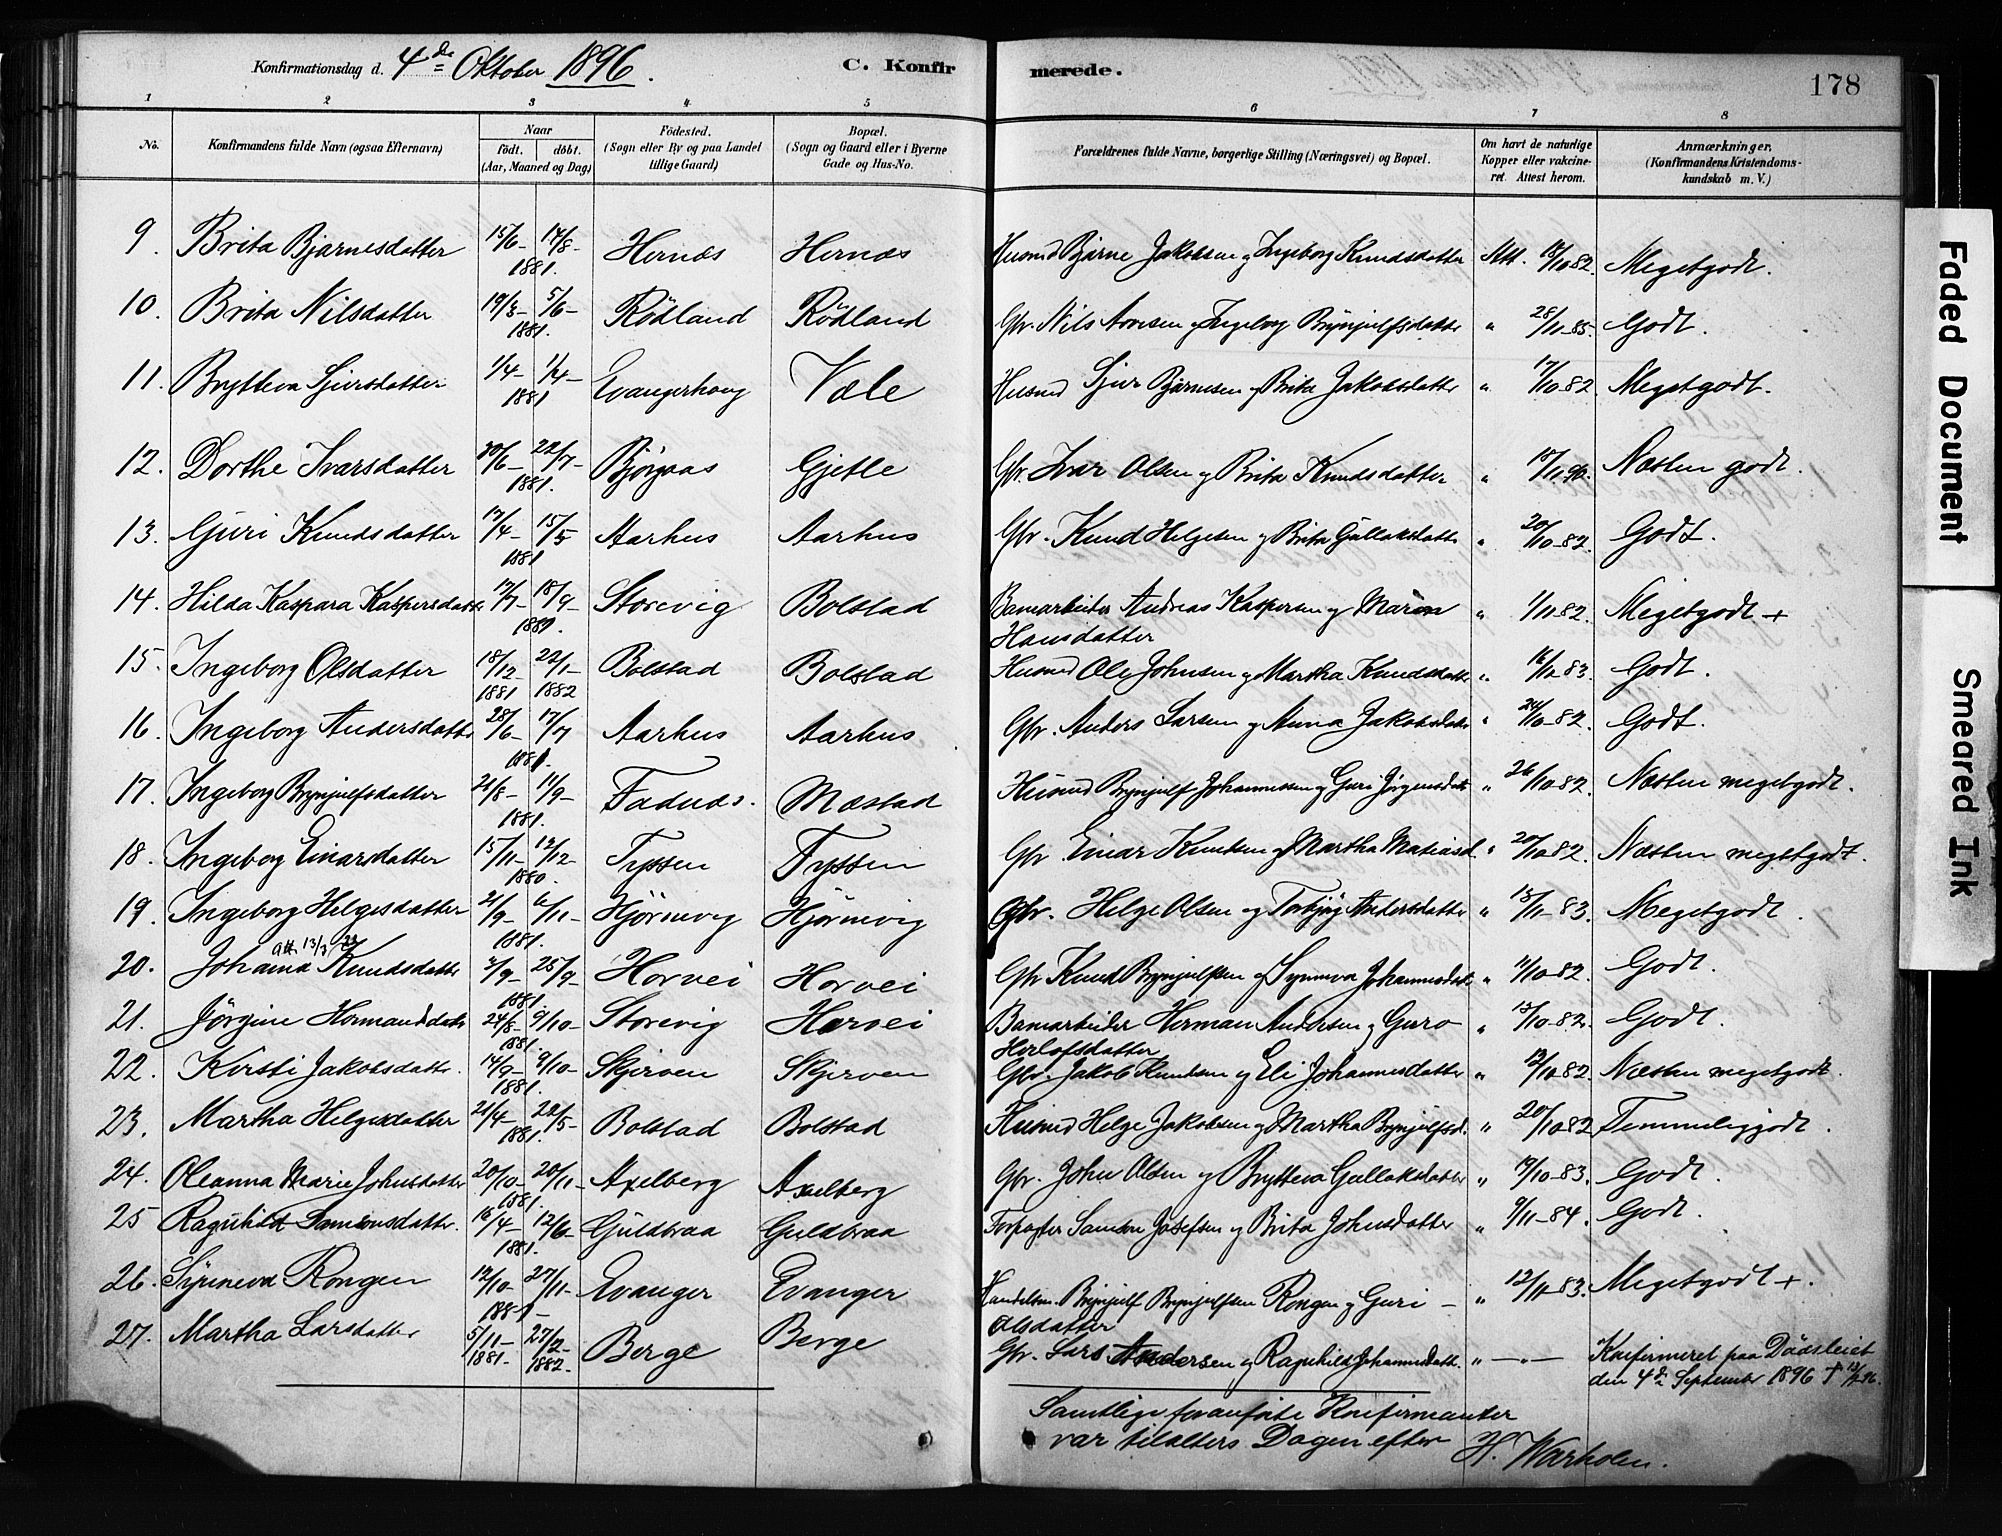 Konfirmationsdag d. 4de Oktober 1896. C. Konfirmerede. 178
1 2 3 4 5 6 7 8
No. Konfirmandens fulde Navn (ogsaa Efternavn) Naar födt. döbt. (Aar, Maaned og Dag) Födested. (Sogn eller By og paa Landet tillige Gaard) Bopæl. (Sogn og Gaard eller i Byerne Gade og Hus-No. Forældrenes fulde Navne, borgerlige Stilling (Næringsvei) og Bopæl. Om havt de naturlige Kopper eller vakcineret. Attest herom. Anmærkninger. (Konfirmandens Kristendomskundskab m. V.)
9. Brita Bjarnesdatter 15/6- 14/8- 1881. Hernæs Hernæs Husmd Bjarne Jakobsen og Ingeborg Knudsdatter Att. 18/10 82. Megetgodt.
10. Brita Nilsdatter 19/3- 5/6- 1881. Rödland Rödland Gbr. Nils Arnesen og Ingeborg Brynjulfsdatter " 28/11-85. Godt.
11. Brytteva Sjursdatter 1/4- 1881 Evangerhoug Væle Husmd Sjur Bjarnesen og Brita Jakobsdatter " 17/10 82 Megetgodt.
12. Dorthe Ivarsdatter 30/6- 22/7- 1881. Bjørgaas Gjetle Gbr. Ivar Olsen og Brita Knudsdatter " 18/11 90. Næsten godt.
13. Guri Knudsdatter 17/4- 15/5 1881 Aarhus Aarhus Gbr. Knud Helgesen og Brita Gullaksdatter " 20/10-82. Godt.
14. Hilda Kaspara Kaspersdatt. 17/7- 18/9- Storevig Bolstad Banearbeider Andreas Kaspersen og Maren Hansdatter " 1/11 82. Megetgodt +
15. Ingeborg Olsdatter 18/12- 1881 22/1- 1882 Bolstad Bolstad Husmd Ole Johnsen og Martha Knudsdatter " 83. Godt.
16. Ingeborg Andersdatter 28/6- 17/7 1881. Aarhus Aarhus Gbr. Anders Larsen og Anna Jakobsdatter " 24/10-82. Godt.
17. Ingeborg Brynjulfsdatter 21/8- 11/9- 1881. Fadnæs. Mæstad Husmd Brynjulf Johannessen og Guri Jørgensdatt " 26/10 82. Næsten megetgodt.
18. Ingeborg Einarsdatter 15/11- 12/12 1880. Tyssen Tyssen Gbr Einar Knudsen og Martha Matiasd. " 20/10 82. Næsten megetgodt.
19. Ingeborg Helgesdatter 21/9- 6/11- 1881. Hjørnevig Hjørnevig Gbr. Helge Olsen og Torbjørg Andersdatter " 13/11-83. Megetgodt.
att. 13/3 22
20. Johanna Knudsdatter 2/9- 25/9- 1881. Horvei Horvei Gbr Knud Brynjulfsen og Synneva Johannesdatt " 11/10-82. Godt.
21. Jörgine Hermansdatt 24/8- 9/10- 1881. Storevig Horvei Banearbeider Herman Andersen og Guro Herlofsdatter " 13/10-82. Godt.
22. Kirsti Jakobsdatter. 14/9- 9/10- 1881. Skjerven Skjerven Gbr. Jakob Knudsen og Eli Johannesdatter " 82. Næsten megetgodt.
23. Martha Helgesdatter 21/4- 22/5- 1881. Bolstad Bolstad Husmd Helge Jakobsen og Martha Brynjulfsd. " 20/10 82 Temmeliggodt.
24. Oleanna Marie Johnsdatter 20/10- 20/11- 1881. Axelberg Axelberg Gbr. John Olsen og Brytteva Gullaksdatter " 19/10-83. Godt.
25 Ragnhild Samsonsdatter. 16/4- 12/6- 1881. Guldbraa Guldbraa Forpagter Samson Josefsen og Brita Johnsdatter " 9/11-84. Godt.
26. Synneva Rongen 12/10- 27/11- 1881- Evanger Evanger Handelsm. Brynjulf Brynjulfsen Rongen og Guri Olsdatter " 12/11-83. Megetgodt +.
27. Martha Larsdatter 5/11- 1881- 27/2- 1882- Berge Berge Gbr. Lars Andersen og Ragnhild Johannesdatt. " — " — Konfirmeret paa Dödsleiet den 4de September 1896 †
Samtlige foranförte Konfirmanter
var tilalters Dagen efter H. Warholm.
Faded Document
Smeared Ink